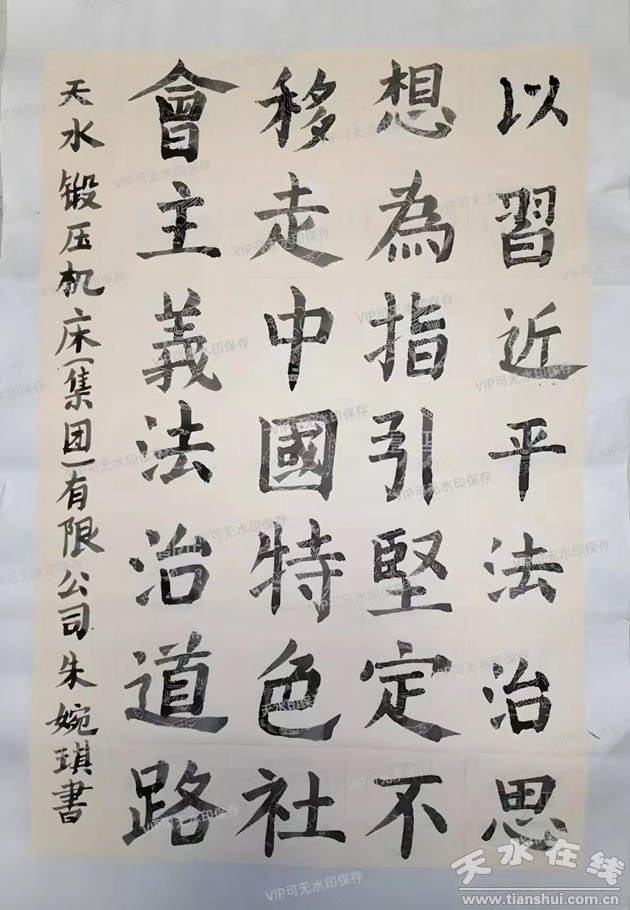 以習近平法治思
想為指引堅定不
移走中國特色社
會主義法治道路
天水锻压机床(集团)有限公司朱婉琪書
VIP可无水印保存
天水在线
www.tianshui.com.cn